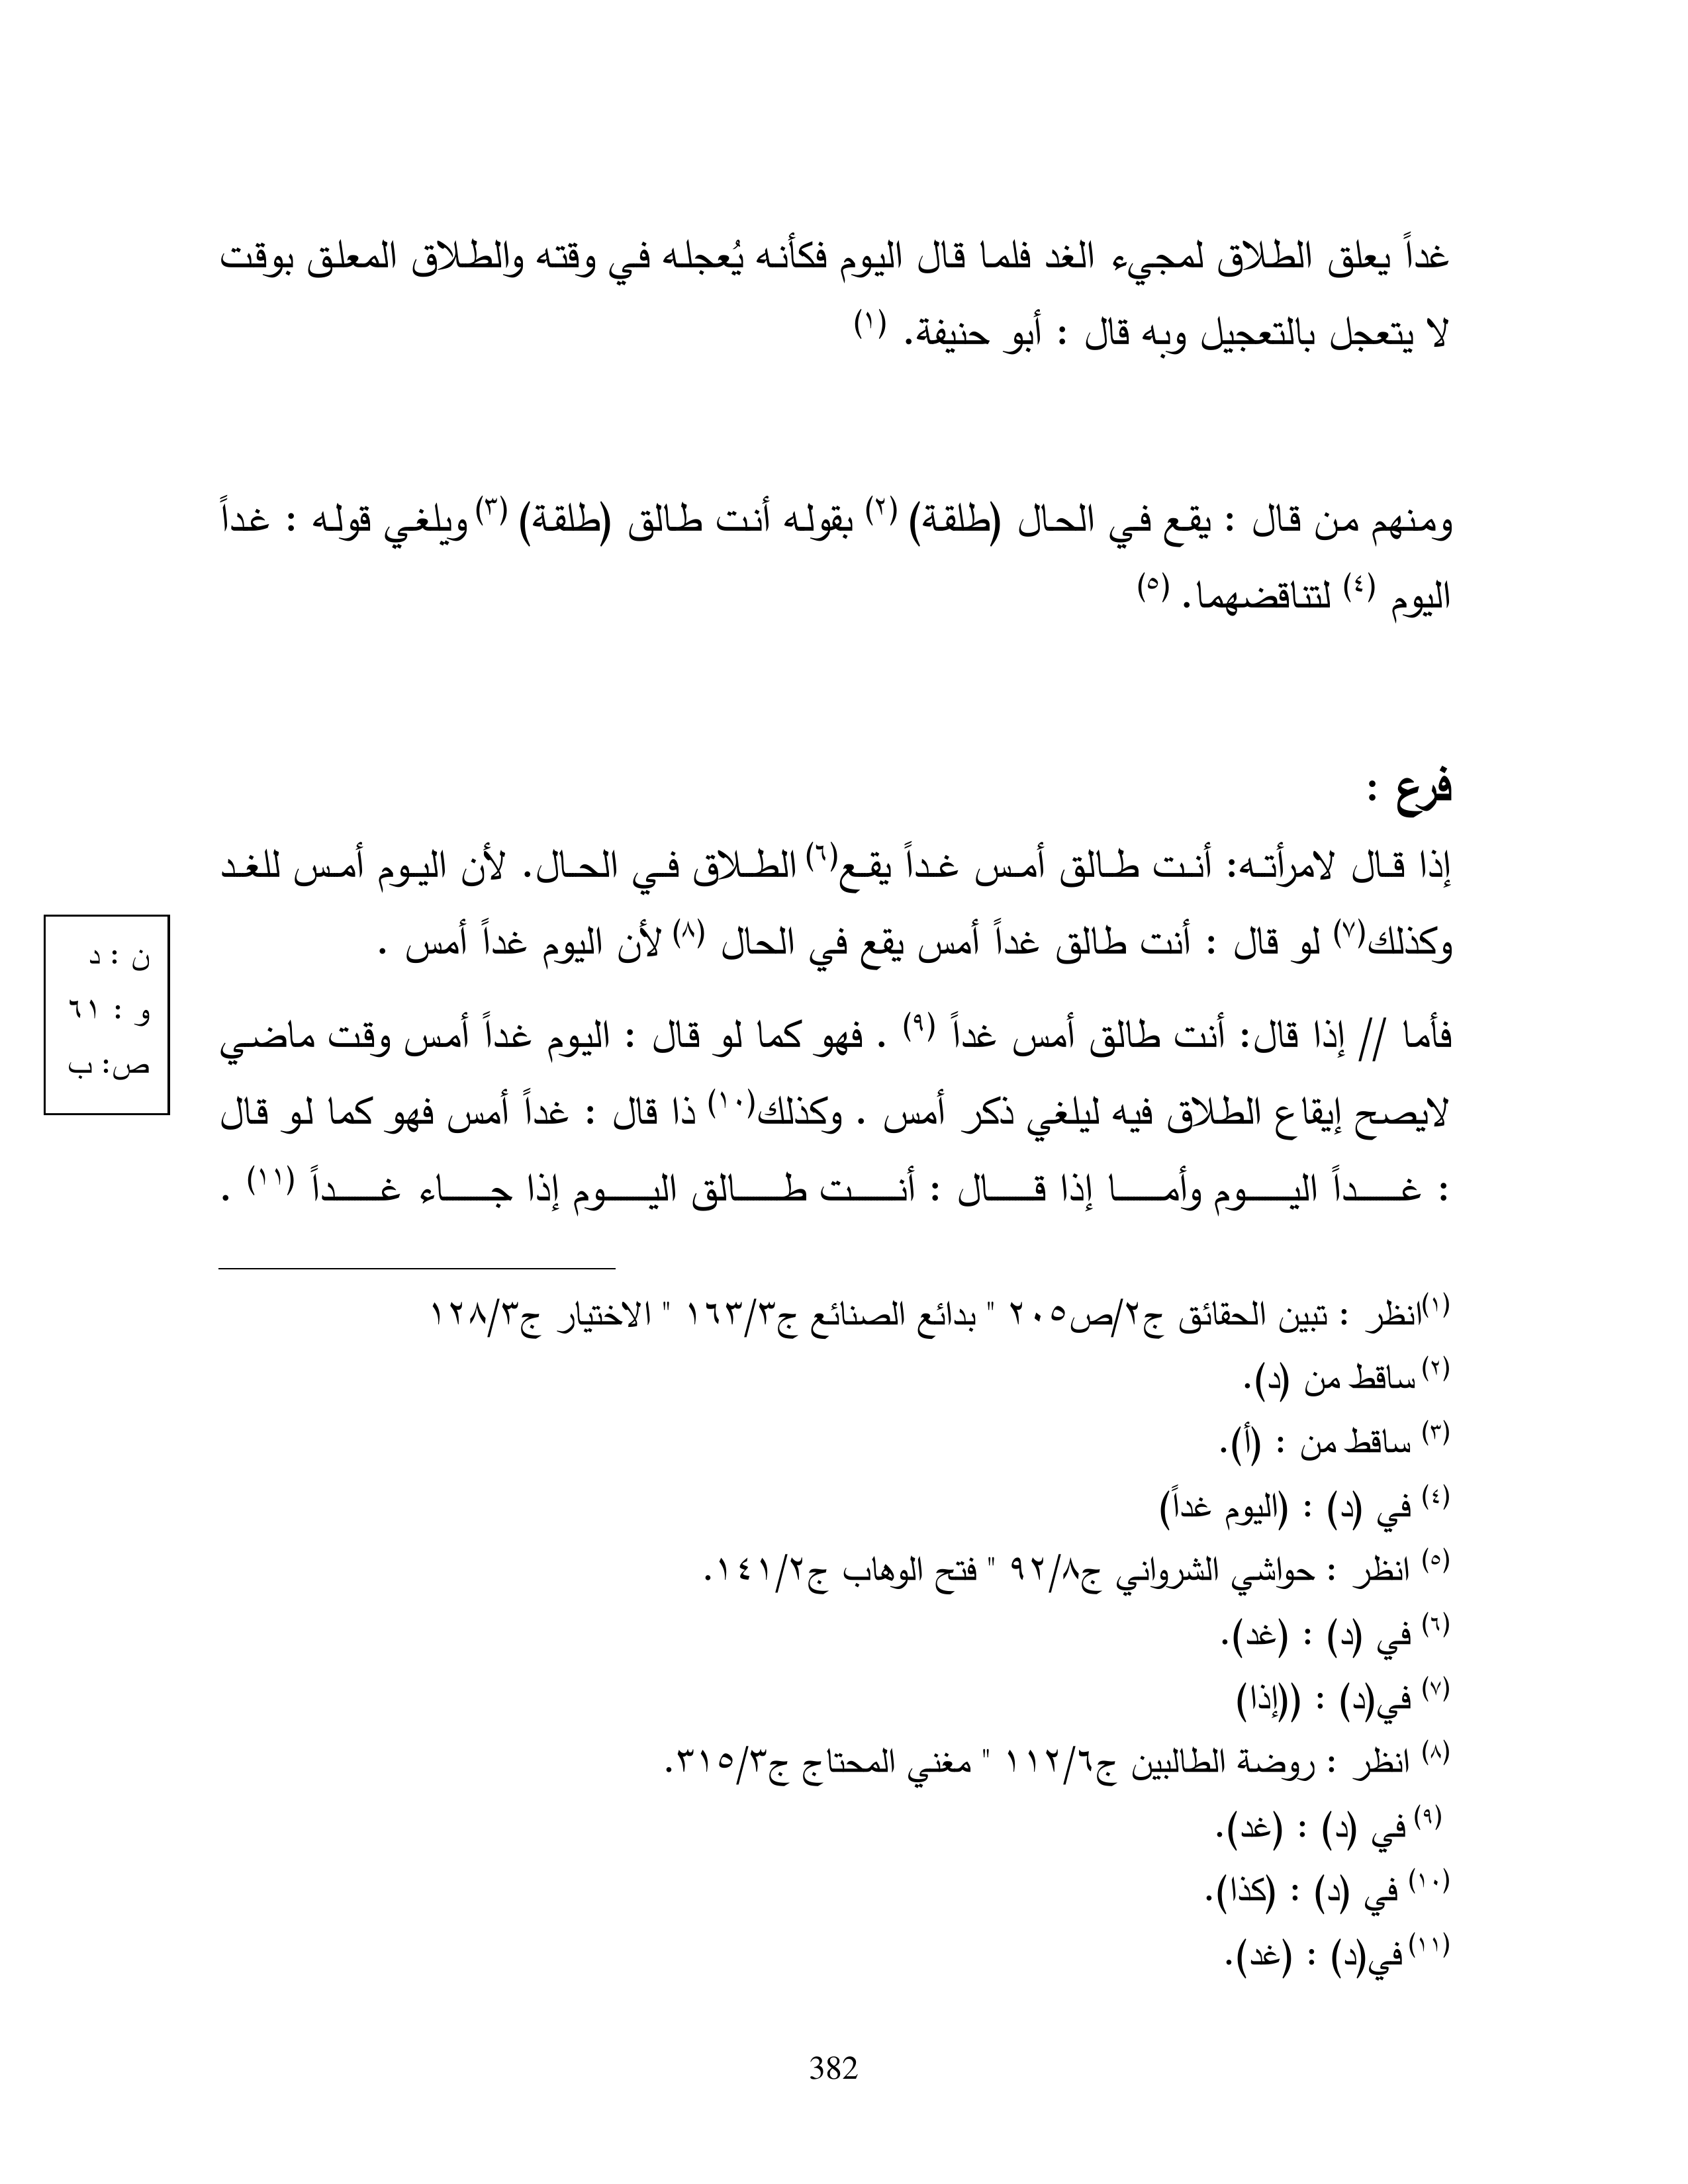 غداً يعلق الطلاق لمجيء الغد فلما قال اليوم فكأنه يُعجله في وقته والطلاق المعلق بوقت
لا يتعجل بالتعجيل وبه قال : أبو حنيفة. (١)
ومنهم من قال : يقع في الحال (طلقة) (٢) بقوله أنت طالق (طلقة) (٣) ويلغي قوله : غداً
اليوم (٤) لتناقضهما. (٥)
فرع :
إذا قال لامرأته: أنت طالق أمس غداً يقع(٦) الطلاق في الحال. لأن اليوم أمس للغد
وكذلك(٧) لو قال : أنت طالق غداً أمس يقع في الحال (٨) لأن اليوم غداً أمس .
فأما // إذا قال: أنت طالق أمس غداً (٩) . فهو كما لو قال : اليوم غداً أمس وقت ماضي
لايصح إيقاع الطلاق فيه ليلغي ذكر أمس . وكذلك(١٠) ذا قال : غداً أمس فهو كما لو قال
: غداً اليوم وأما إذا قال : أنت طالق اليوم إذا جاء غداً (١١) .
ن : د
و : ٦١
ص: ب
(١)انظر : تبين الحقائق ج٢/ص٢٠٥ " بدائع الصنائع ج٣/١٦٣ " الاختيار ج٣/١٢٨
(٢) ساقط من (د).
(٣) ساقط من : (أ).
(٤) في (د) : (اليوم غداً)
(٥) انظر : حواشي الشرواني ج٨/٩٢ " فتح الوهاب ج٢/١٤١.
(٦) في (د) : (غد).
(٧) في(د) : ((إذا)
(٨) انظر : روضة الطالبين ج٦/١١٢ " مغني المحتاج ج٣/٣١٥.
(٩) في (د) : (غد).
(١٠) في (د) : (كذا).
(١١) في(د) : (غد).
382